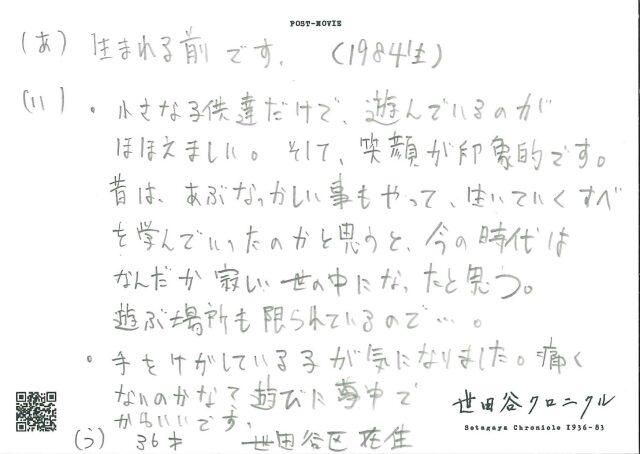 POST-MOVIE
(あ) 生まれる前です。 (1984生)
(い)・小さな子供達だけで、遊んでいるのが
ほほえましい。そして、笑顔が印象的です。
昔は、あぶなっかしい事もやって、生いていくすべ
を学んでいったのかと思うと、今の時代は
なんだか寂しい世の中になったと思う。
遊ぶ場所も限られているので…。
・手をけがしている子が気になりました。痛く
ないのかな？遊びに夢中で
かわいいです。
(う) 36才 世田谷区在住
世田谷クロニクル
Setagaya Chronicle 1936-83